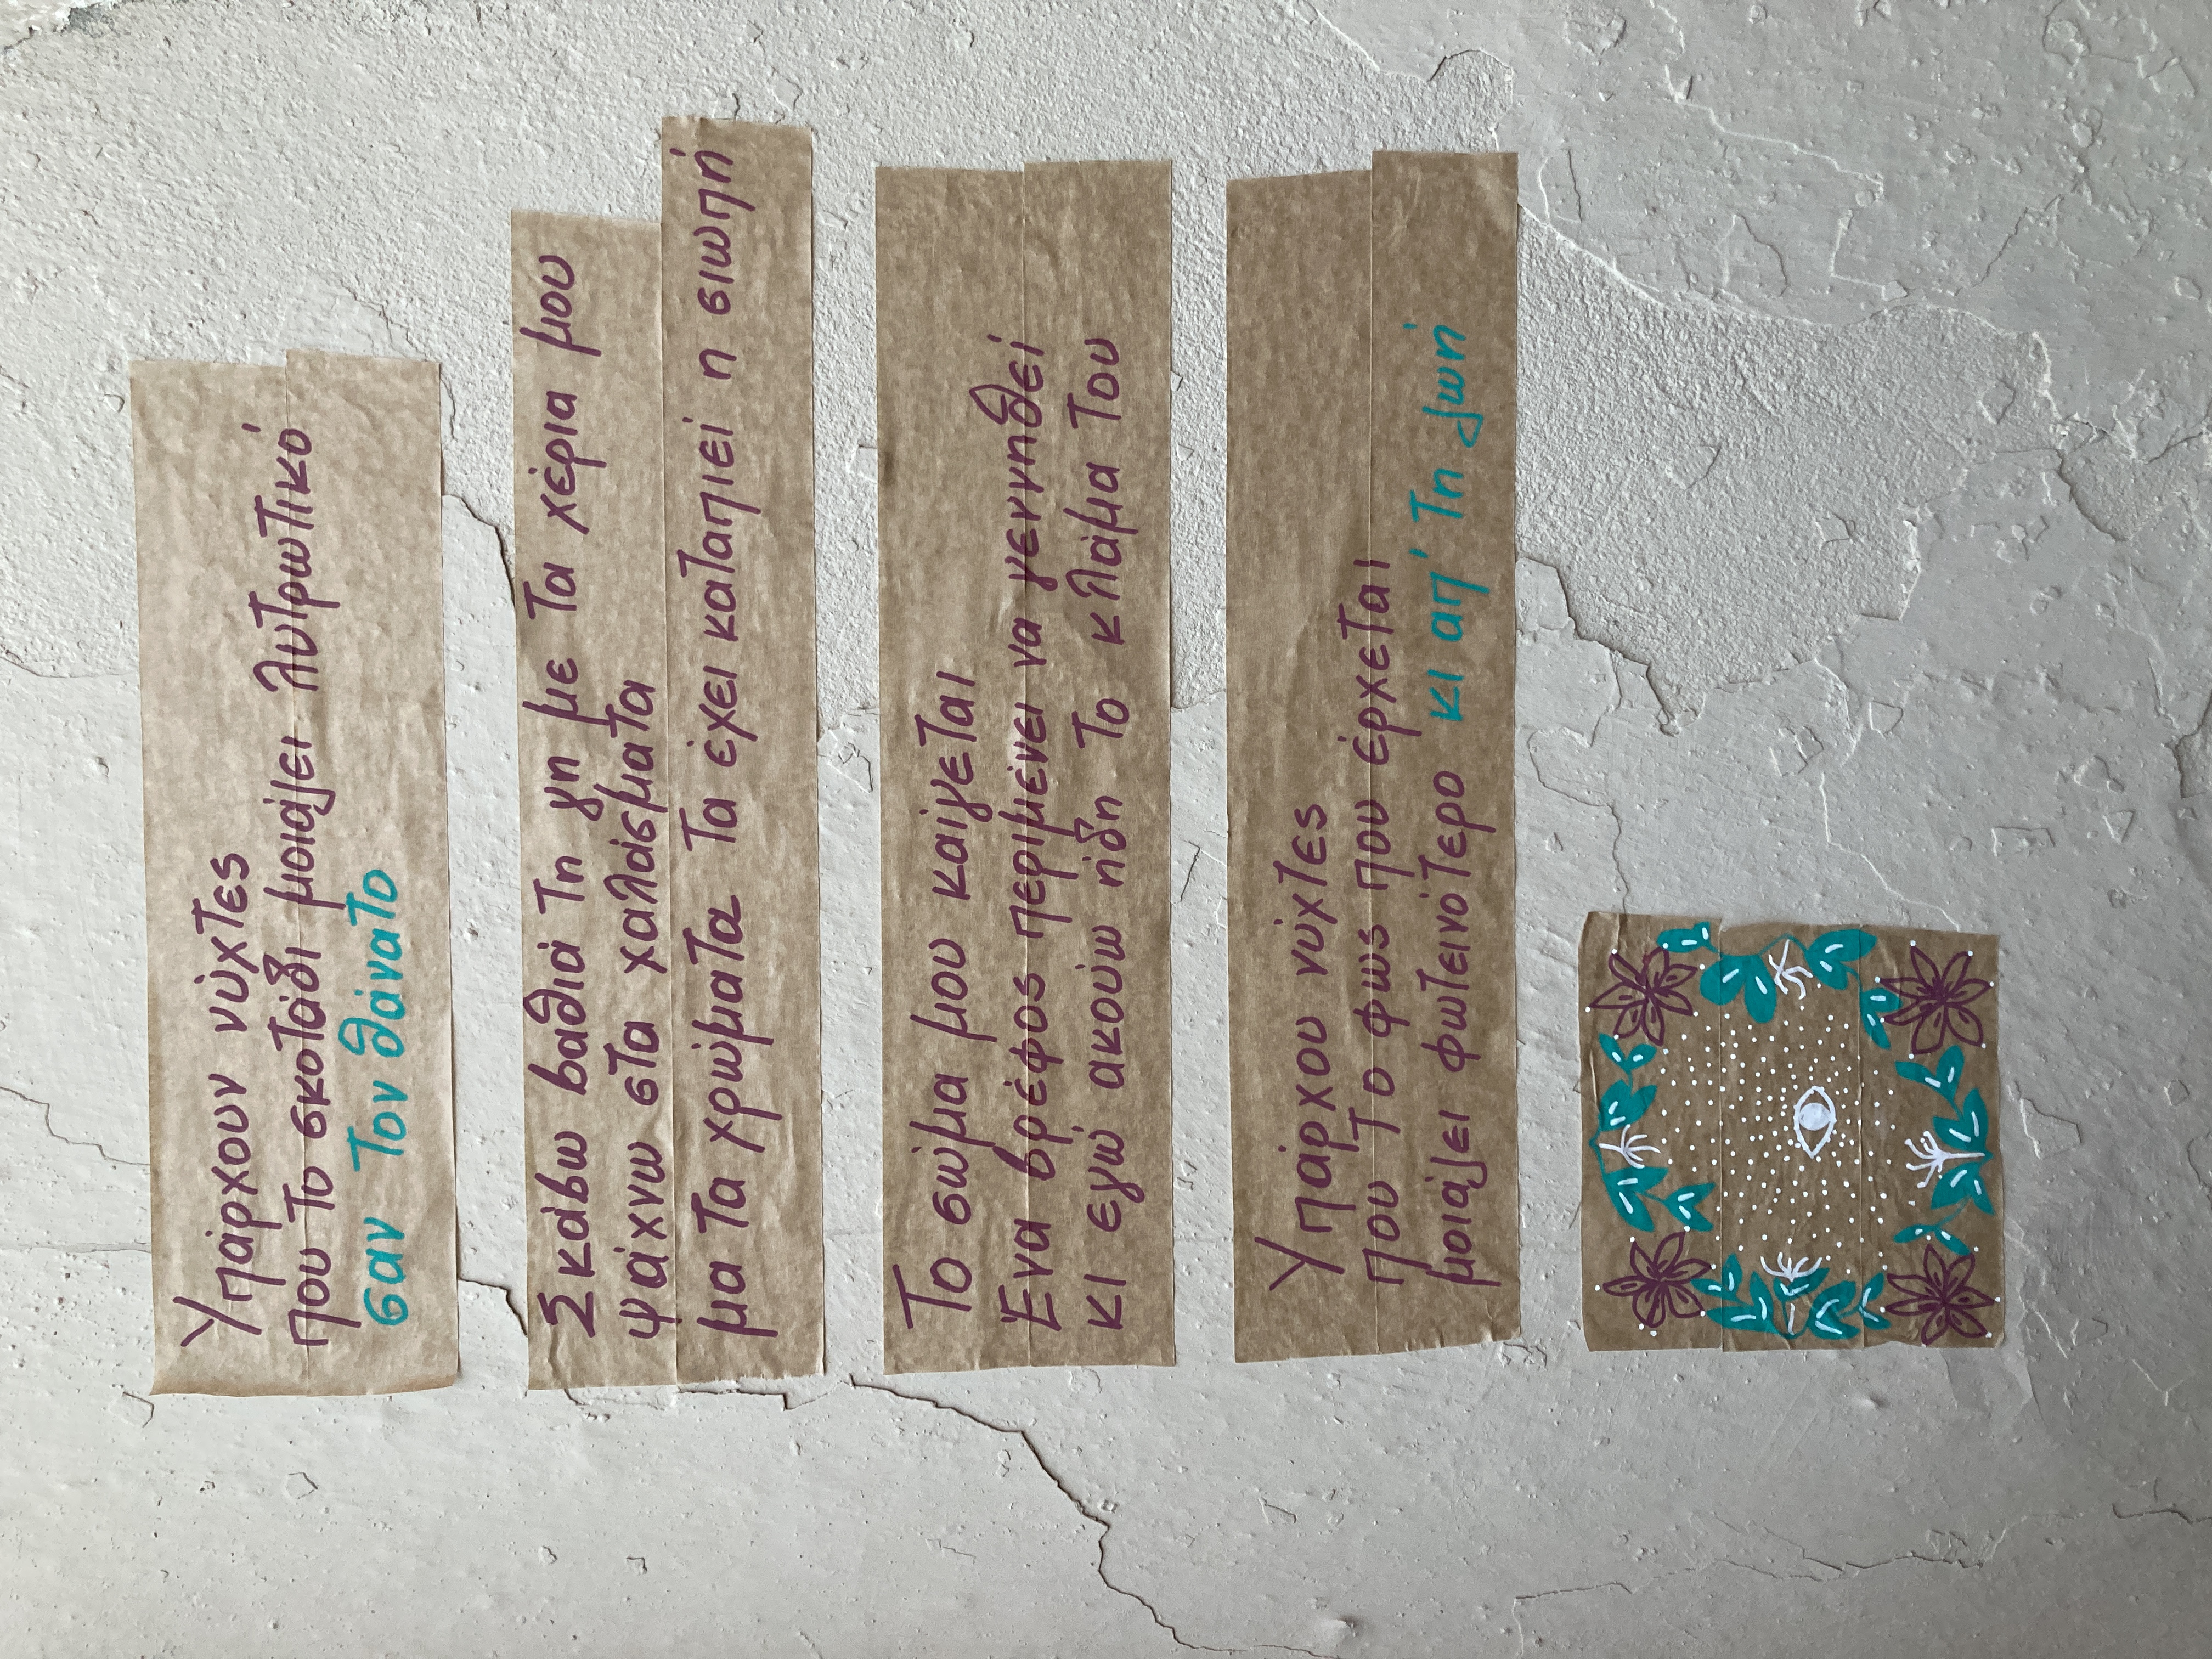 Υπάρχουν νύχτες
που το σκοτάδι μοιάζει λυτρωτικό
σαν τον θάνατο
Σκάβω βαθιά τη γη με τα χέρια μου
ψάχνω στα χαλάσματα
μα τα χρώματα τα έχει καταπιεί η σιωπή
Το σώμα μου καίγεται
Ένα βρέφος περιμένει να γεννηθεί
κι εγώ ακούω ήδη το κλάμα του
Υπάρχου νύχτες
που το φως που έρχεται
μοιάζει φωτεινότερο κι απ' τη ζωή